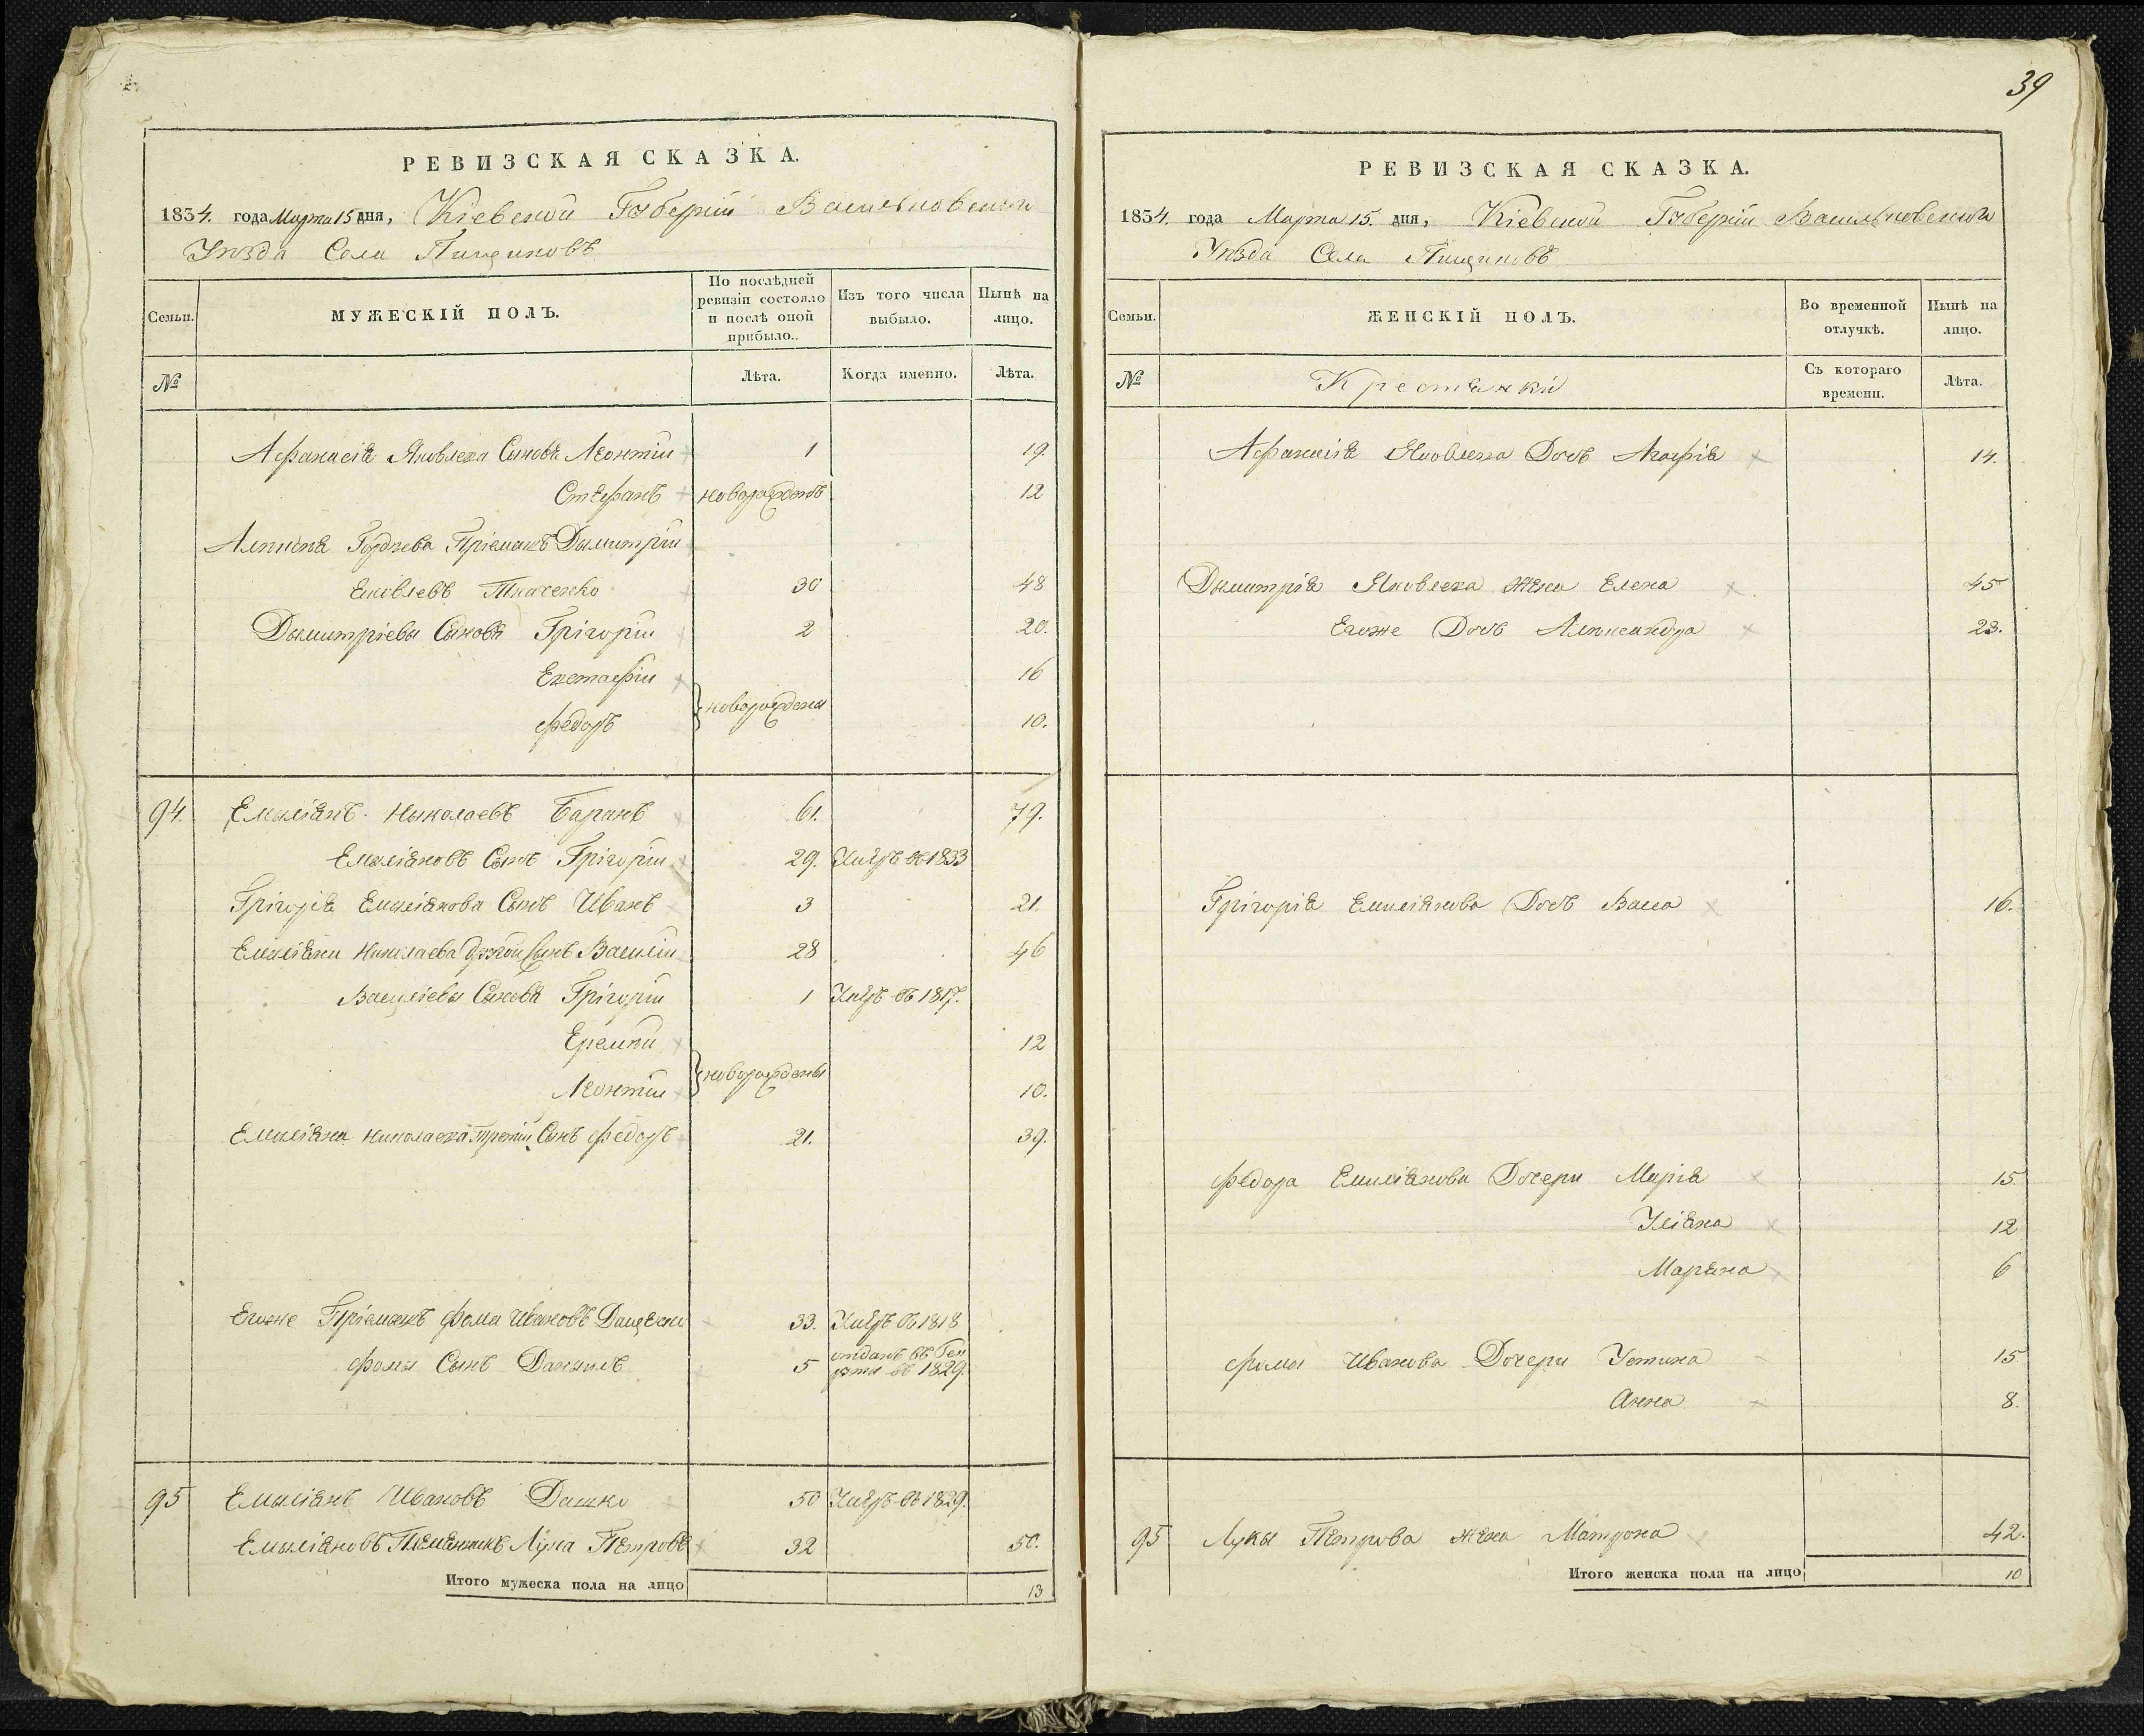 39
РЕВИЗСКАЯ СКАЗКА.
1834. года Марта 15 дня, Кіевской Губерніи Васильковского
Уѣзда Села Пищиковъ
Семьи.
МУЖЕСКІЙ ПОЛЪ.
По послѣдней ревизіи состояло и послѣ оной прибыло.
Изъ того числа выбыло.
Нынѣ на лицо.
№
Лѣта.
Когда именно.
Лѣта.
Афанасія Яковлева Сыновя Леонтіи 1 19.
Стефанъ новорожденъ 12
Гордѣева Пріемакъ Дымитріи
Яковлевъ Ткаченко 30 48
Дымитріевы Сыновя Грігоріи 2 20.
Евстафіи 16
новорождены
Федоръ 10.
94. Емыліянъ Ныколаевъ Баранъ 61. 79.
Емыліяновъ Сынъ Грігоріи 29. Умеръ въ 1833
Грігорія Емыліянова Сынъ Иванъ 3 21.
Емыліяна Николаева другои Сынъ Василіи 28 46
Васыліевы Сыновя Грігоріи 1 Умеръ въ 1817.
Еремѣи 12
новорождены
Леонтіи 10.
Емыліяна Николаева третіи Сынъ Федоръ 21. 39.
Егоже Пріемакъ Фома Ивановъ 33. Умеръ въ 1818
Фомы Сынъ Данылъ 5 отданъ въ Рек
руты въ 1829.
95 Емыліянъ Ивановъ Дашко 50 Умеръ въ 1829.
Емыліяновъ Племянникъ Лука Петровъ 32 50.
Итого мужеска пола на лицо 13
РЕВИЗСКАЯ СКАЗКА.
1834. года Марта 15. дня, Кіевской Губерніи Васильковского
Уѣзда Села Пищиковъ
Семьи.
ЖЕНСКІЙ ПОЛЪ.
Во временной отлучкѣ.
Нынѣ на лицо.
№
Крестянки
Съ котораго времени.
Лѣта.
Афанасія Яковлева Дочъ Агафія 14.
Дымитрія Яковлева жена Елена 45
Егоже Дочъ Александра 23.
Грігорія Емыліянова Дочъ Васса 16.
Федора Емыліянова Дочери Марія 15
Уліяна 12
Маряна 6
Фомы Иванова Дочери Устина 15
Анна 8.
95 Лукы Петрова жена Матрона 42.
Итого женска пола на лицо 10